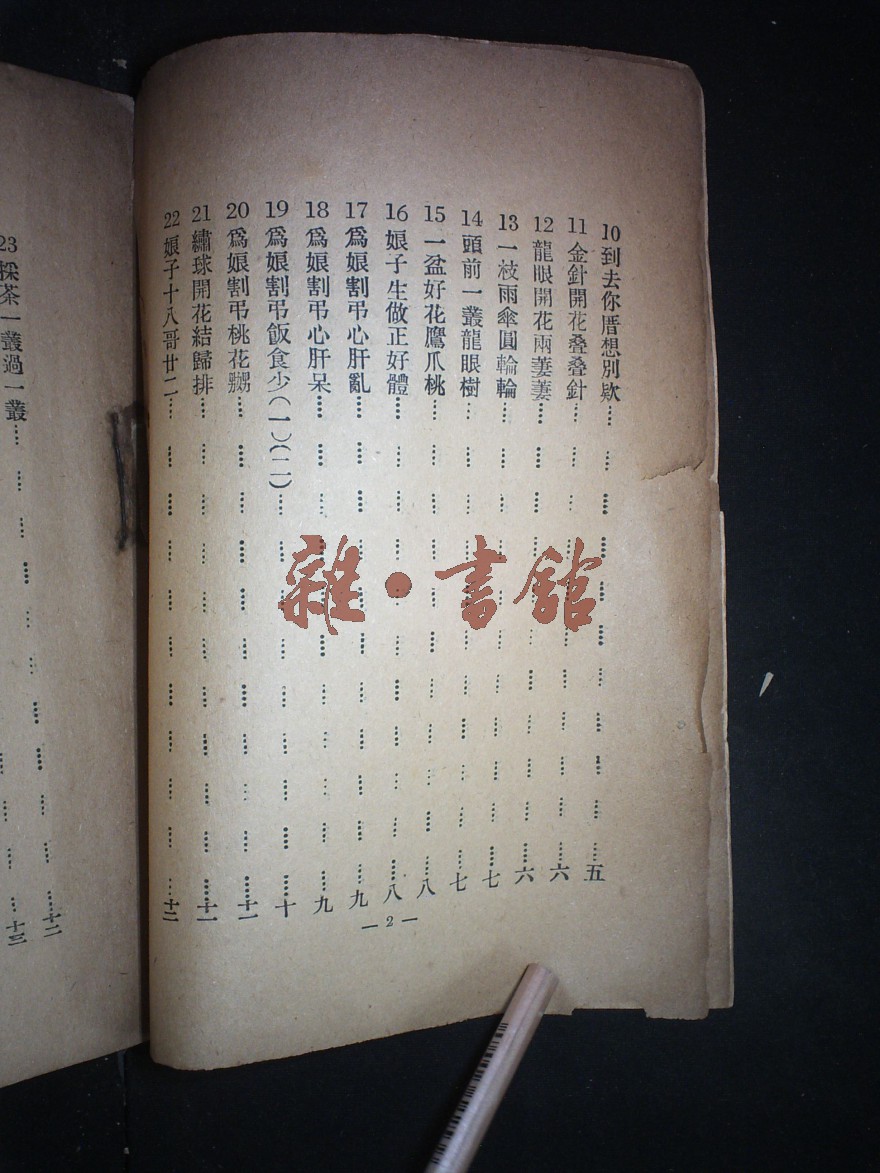 10 到去你厝想別欵……五
11 金針開花叠叠針……六
12 龍眼開花兩萋萋……六
13 一枝雨傘圓輪輪……七
14 頭前一叢龍眼樹……七
15 一盆好花鷹爪桃……八
16 娘子生做正好體……八
17 爲娘割弔心肝亂……九
18 爲娘割弔心肝呆……九
19 爲娘割弔飯食少(一)(二)……十
20 爲娘割弔桃花嬲……十一
21 繡球開花結歸排……十一
22 娘子十八哥廿二……十二
— 2 —
23 採茶一叢過一叢……十二
十三
雜·書館